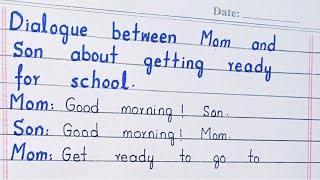 Date:
Dialogue between Mom and
Son about getting ready
for school.
Mom: Good morning! Son.
Son: Good morning! Mom.
Mom: Get ready to go to